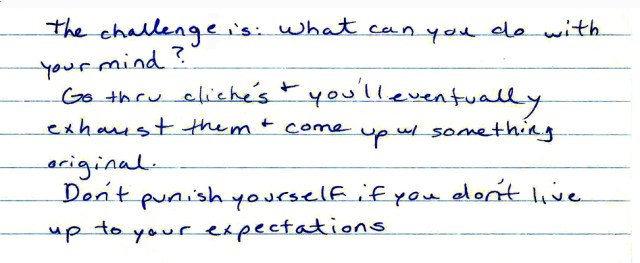 The challenge is: What can you do with
your mind?
Go thru cliché's + you'll eventually
exhaust them + come up w/ something
original.
Don't punish yourself if you don't live
up to your expectations